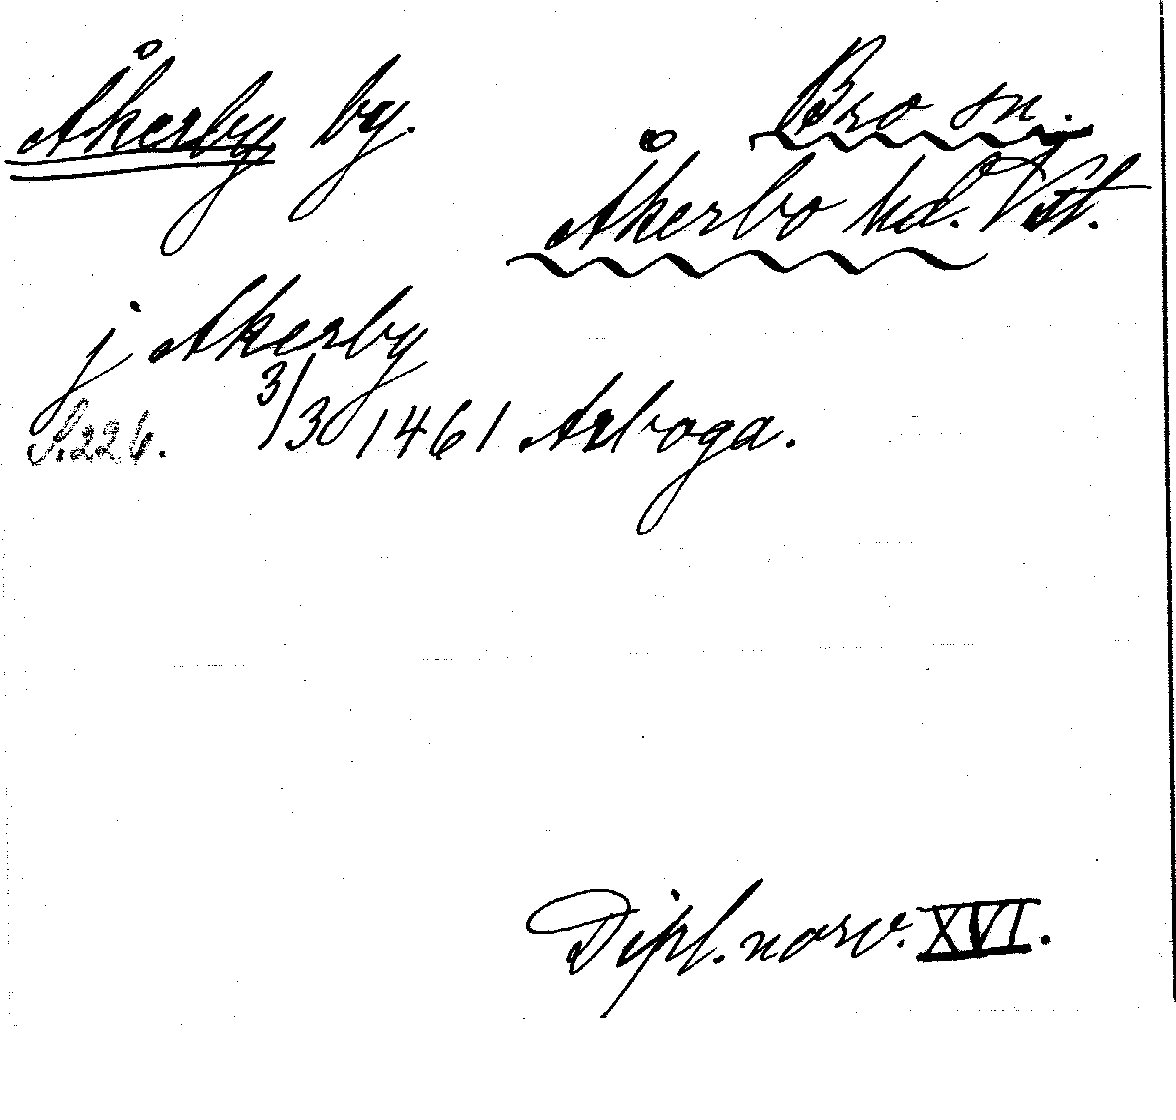 Åkerby by. Bro sn.
Åkerbo hd. Vstl.
j Akerby
S. 226. 3/3 1461 Arboga.
Dipl. norv. XVI.